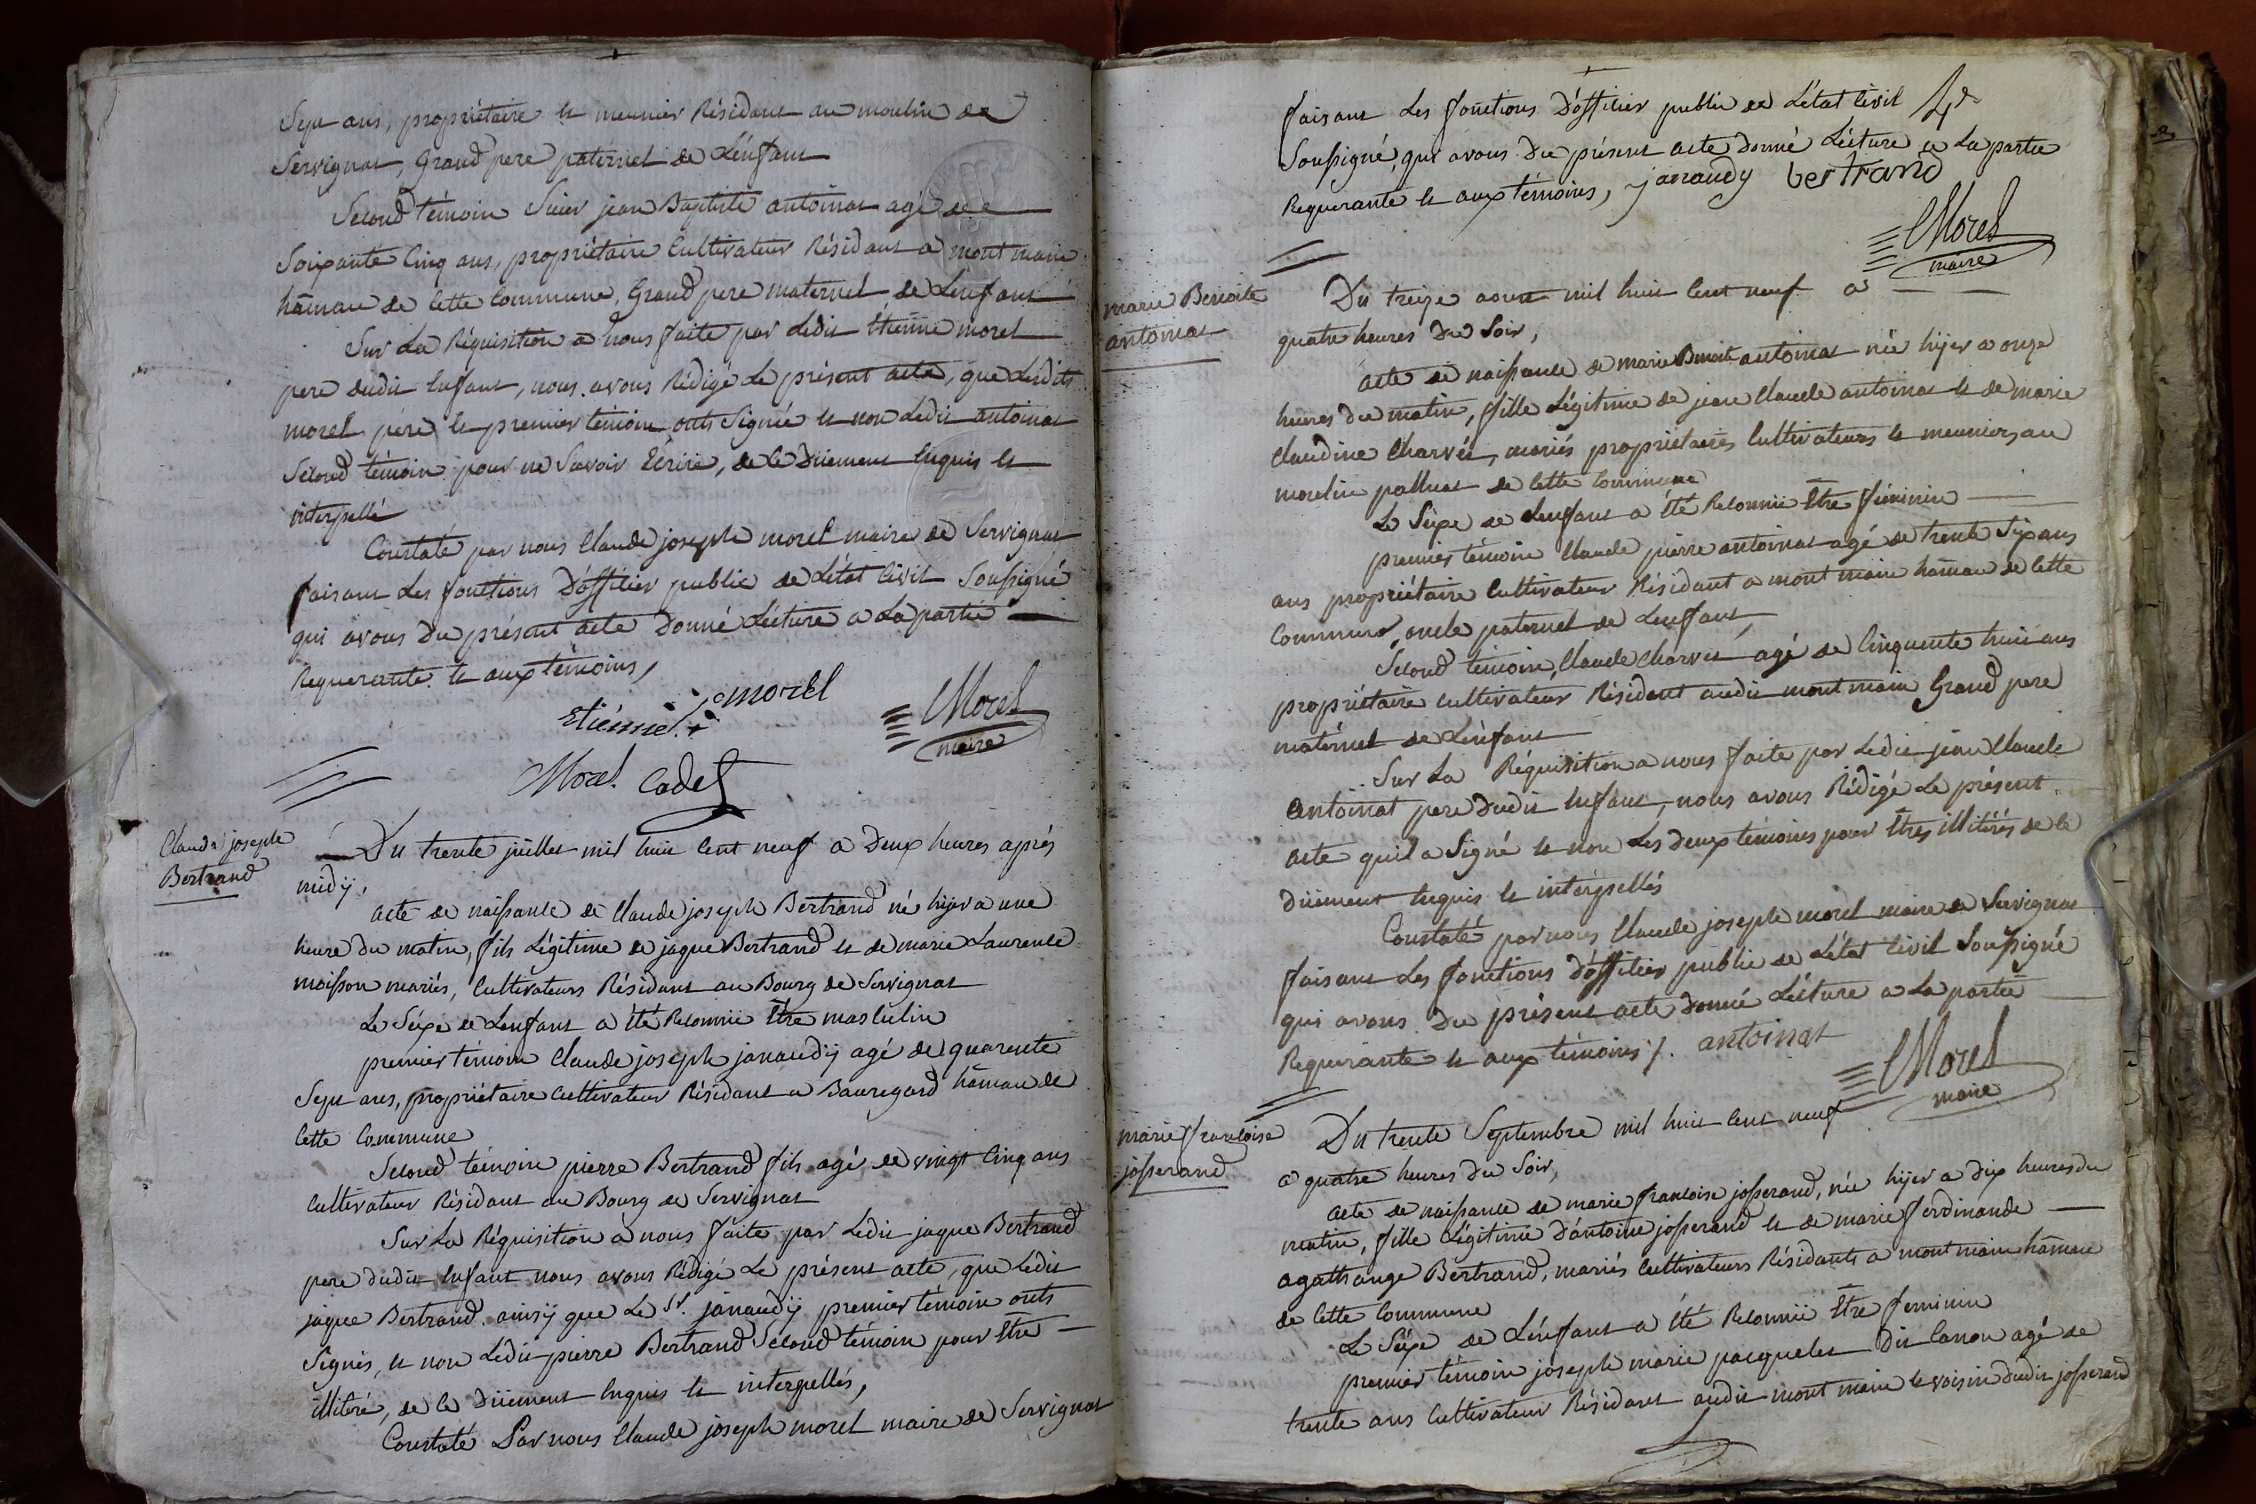 Sept ans, propriétaire et meunier Résidant au moulin de
Servignat, Grand pere paternel de L'énfant
Second témoin Sieur jean Baptiste antoinat agé de
Soixante Cinq ans, propriétaire Cultivateur Résidant a mont main
hámau de Cette Commune, Grand pere maternel de L'enfant
Sur La Réquisition a nous faite par Ledit Etienne morel
pere dudit Enfant, nous avons Rédigé Le présent acte, que Lesdits
morel pere et premier témoin onts Signée et non Ledit antoinat
Second témoin pour ne Savoir Ecrire, de Ce Düement Enquis et
interpellé
Constaté par nous Claude joseph morel maire de Servignat
faisant Les fonctions D'officier public de L'état Civil Soussigné
qui avons Du présent acte Donné Lécture a La partie
Requerante et aux témoins,
Etiénne morel
Morel
maire
Morel Cadet
Claude joseph
Bertrand
Du trente juillet mil huit Cent neuf a Deux heures aprés
midÿ,
acte de naissance de Claude joseph Bertrand né hÿer a une
heure du matin, fils Légitime de jaque Bertrand et de marie Laurence
moisson mariés, Cultivateurs Résidant au Bourg de Servignat
Le Séxe de L'enfant a été Reconnüe Etre masculin
premier témoin Claude joseph janaudÿ agé de quarente
Sept ans, propriétaire Cultivateur Résidant a Bauregard hámau de
Cette Commune
Second témoin pierre Bertrand fils agé de vingt Cinq ans
Cultivateur Résidant au Bourg de Servignat
Sur La Réquisition a nous faite par Ledit jaque Bertrand
pere dudit Enfant nous avons Rédigé Le présent acte, que Ledit
jaque Bertrand ainsÿ que Le Sr. janaudÿ premier témoin onts
Signés, et non Ledit pierre Bertrand Second témoin pour Etre
illitéré, de Ce Düement Enquis et interpellés,
Constaté Par nous Claude joseph morel maire de Servignat
faisant Les fonctions D'officier public de L'état Civil
Soussigné, qui avons Du présent acte donné Lécture a La partie
Requerante et aux témoins, janaudy bertrand
Morel
maire
marie Benoite
antoinat
Du treize aoust mil huit Cent neuf a
quatre heures Du Soir,
acte de naissance de marie Benoite antoinat née hijer a onze
heures du matin, fille Légitime de jean Claude antoinat et de marie
Claudine Charvet, mariés propriétaires Cultivateurs et meuniers au
moulin palluat de Cette Commune
Le Séxe de L'enfant a été Reconnüe Etre féminin
premier témoin Claude pierre antoinat agé de trente Six ans
ans propriétaire Cultivateur Résidant a mont main hámau de Cette
Commune, oncle paternel de L'enfant,
Second témoin, Claude Charvet agé de Cinquente huit ans
propriétaire cultivateur Résidant audit mont main Grand pere
matérnel de L'énfant
Sur La Réquisition a nous faite par Ledit jean Claude
antoinat pere Dudit Enfant, nous avons Rédigé Le présent
acte qu'il a Signé et non Les deux témoins pour Etres illitérés de Ce
Düement Enquis et interpellés
Constaté par nous Claude joseph morel maire de Servignat
faisant Les fonctions d'officier public de L'état Civil Soussigné
qui avons Du présent acte donné Lécture a La partie
Requerante et aux témoins /. antoinat
Morel
maire
marie francoise
josserand
Du trente Septembre mil huit Cent neuf
a quatre heures Du Soir,
acte de naissance de marie francoise josserand, née hijer a dix heures du
matin, fille Légitime d'antoine josserand et de marie ferdinande
agathange Bertrand, mariés Cultivateurs Résidants a mont main hámau
de Cette Commune
Le Séxe de L'énfant a été Reconnüe Etre feminin
premier témoin joseph marie pacquelet Dit Canon agé de
trente ans Cultivateur Résidant audit mont main et voisin dudit josserand